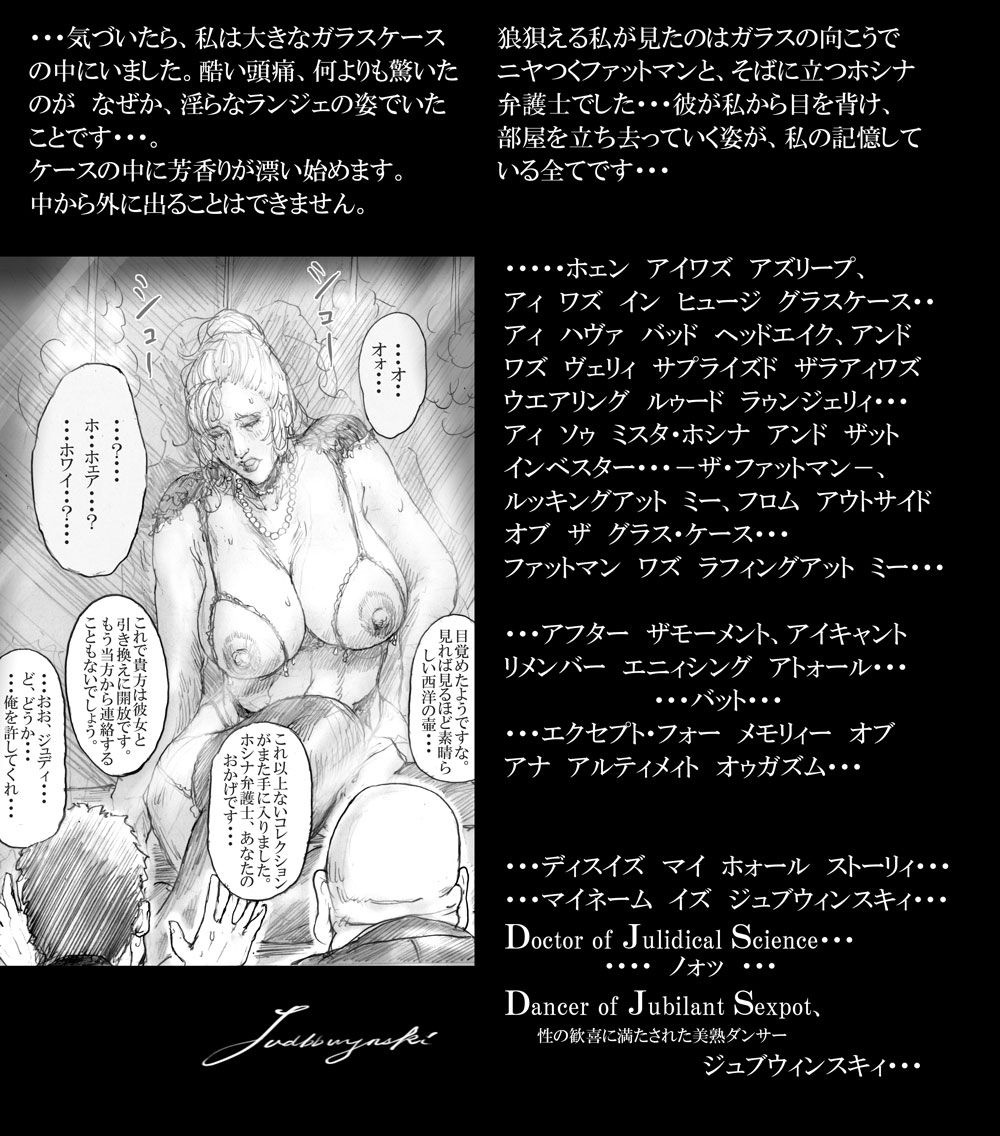 ・・・気づいたら、私は大きなガラスケース
の中にいました。酷い頭痛、何よりも驚いた
のが なぜか、淫らなランジェの姿でいた
ことです・・・。
ケースの中に芳香りが漂い始めます。
中から外に出ることはできません。
狼狽える私が見たのはガラスの向こうで
ニヤつくファットマンと、そばに立つホシナ
弁護士でした・・・彼が私から目を背け、
部屋を立ち去っていく姿が、私の記憶して
いる全てです・・・
シュー
シュー
・・・オ・・
オォ・・・
・・?・・・
ホ・・ホェア・・・?
・・・ホワイ・・?・・・
目覚めたようですな。
見れば見るほど素晴ら
しい西洋の壺・・・
これ以上ないコレクション
がまた手に入りました。
ホシナ弁護士、あなたの
おかげです・・・
これで貴方は彼女と
引き換えに開放です。
もう当方から連絡する
こともないでしょう。
・・・おお、ジュディ・・・
ど、どうか・・・
・・・俺を許してくれ・・・
・・・・・ホェン アイワズ アズリープ、
アィ ワズ イン ヒュージ グラスケース・・
アィ ハヴァ バッド ヘッドエイク、アンド
ワズ ヴェリィ サプライズド ザラアィワズ
ウエアリング ルゥード ラゥンジェリィ・・・
アィ ソゥ ミスタ・ホシナ アンド ザット
インベスター・・・－ザ・ファットマン－、
ルッキングアット ミー、フロム アウトサイド
オブ ザ グラス・ケース・・・
ファットマン ワズ ラフィングアット ミー・・・
・・・アフター ザモーメント、アイキャント
リメンバー エニィシング アトォール・・・
・・・バット・・・
・・・エクセプト・フォー メモリィー オブ
アナ アルティメイト オゥガズム・・・
・・・ディスイズ マイ ホォール ストーリィ・・・
・・・マイネーム イズ ジュブウィンスキィ・・・
Doctor of Julidical Science・・・
・・・・ ノォッ ・・・
Dancer of Jubilant Sexpot、
性の歓喜に満たされた美熟ダンサー
ジュブウィンスキィ・・・